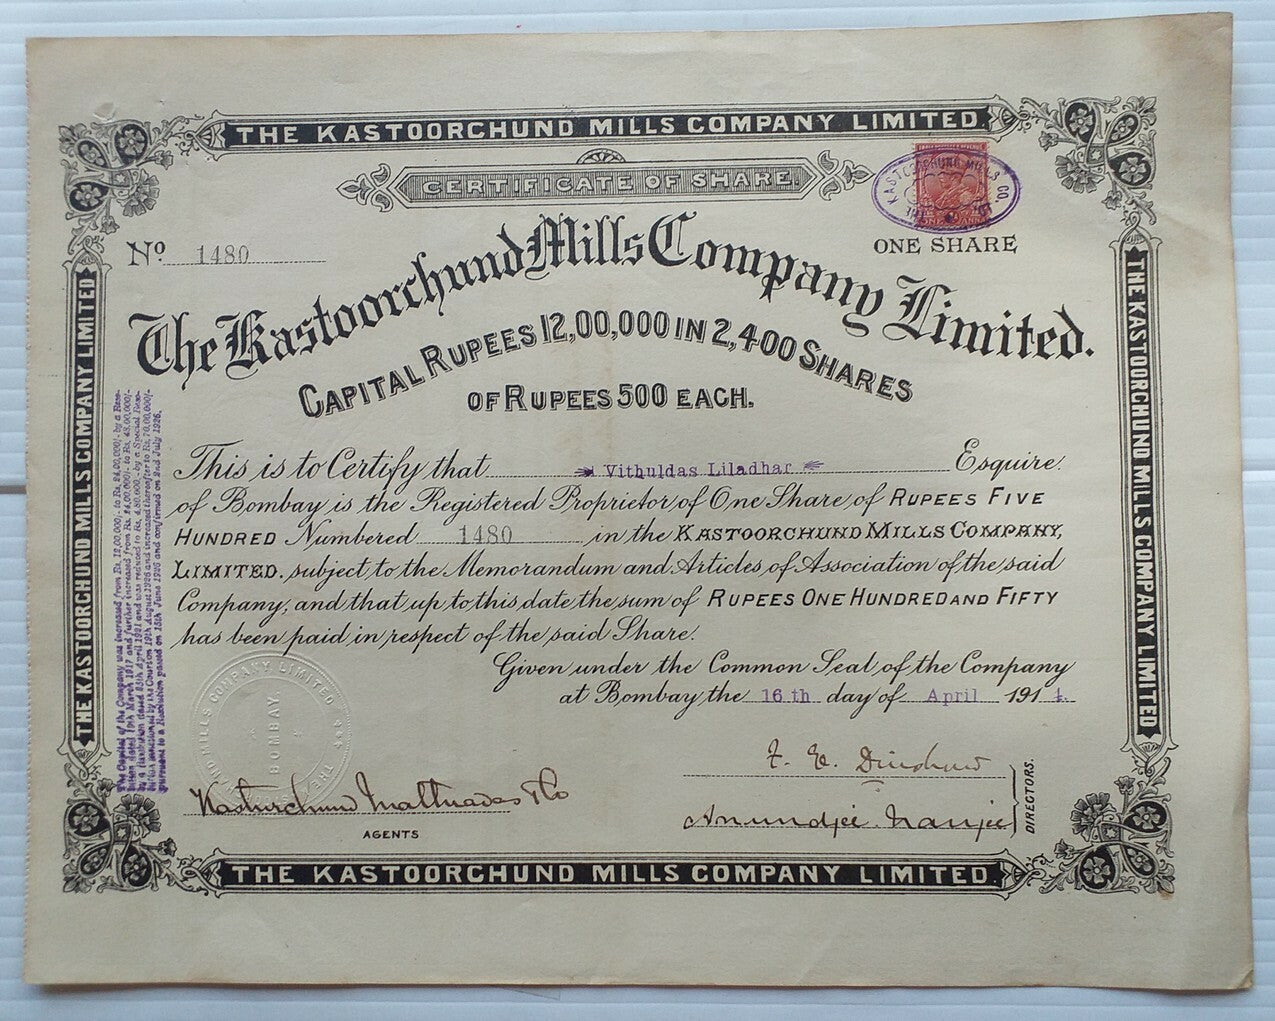 THE KASTOORCHUND MILLS COMPANY LIMITED.
CERTIFICATE OF SHARE.
KASTOORCHUND MILLS CO.
ONE SHARE
No. 1480
The Kastoorchund Mills Company Limited.
CAPITAL RUPEES 12,00,000 IN 2,400 SHARES
OF RUPEES 500 EACH.
This is to Certify that Vithuldas Liladhar Esquire.
of Bombay is the Registered Proprietor of One Share of RUPEES FIVE
HUNDRED Numbered 1480 in the KASTOORCHUND MILLS COMPANY,
LIMITED. subject to the Memorandum and Articles of Association of the said
Company, and that up to this date the sum of RUPEES ONE HUNDRED AND FIFTY
has been paid in respect of the said Share.
Given under the Common Seal of the Company
at Bombay the 16th day of April 1914.
THE KASTOORCHUND MILLS COMPANY LIMITED
THE KASTOORCHUND MILLS COMPANY LIMITED
The Capital of the Company was increased from Rs. 12,00,000/- to Rs. 24,00,000/- by a Reso-
lution dated 19th March 1917 and further increased from Rs. 24,00,000/- to Rs. 48,00,000/-
by a Resolution dated 25th April 1921 and was reduced to Rs. 4,80,000, by a Special Reso-
lution sanctioned by the Court on 19th August 1926 and increased thereafter to Rs. 70,00,000/-
pursuant to a Resolution passed on 15th June 1926 and confirmed on 2nd July 1926.
MILLS COMPANY LIMITED
BOMBAY.
F. E. Dinshaw
Anundjee Nanjee
DIRECTORS.
Kasturchund & Co
AGENTS
THE KASTOORCHUND MILLS COMPANY LIMITED.